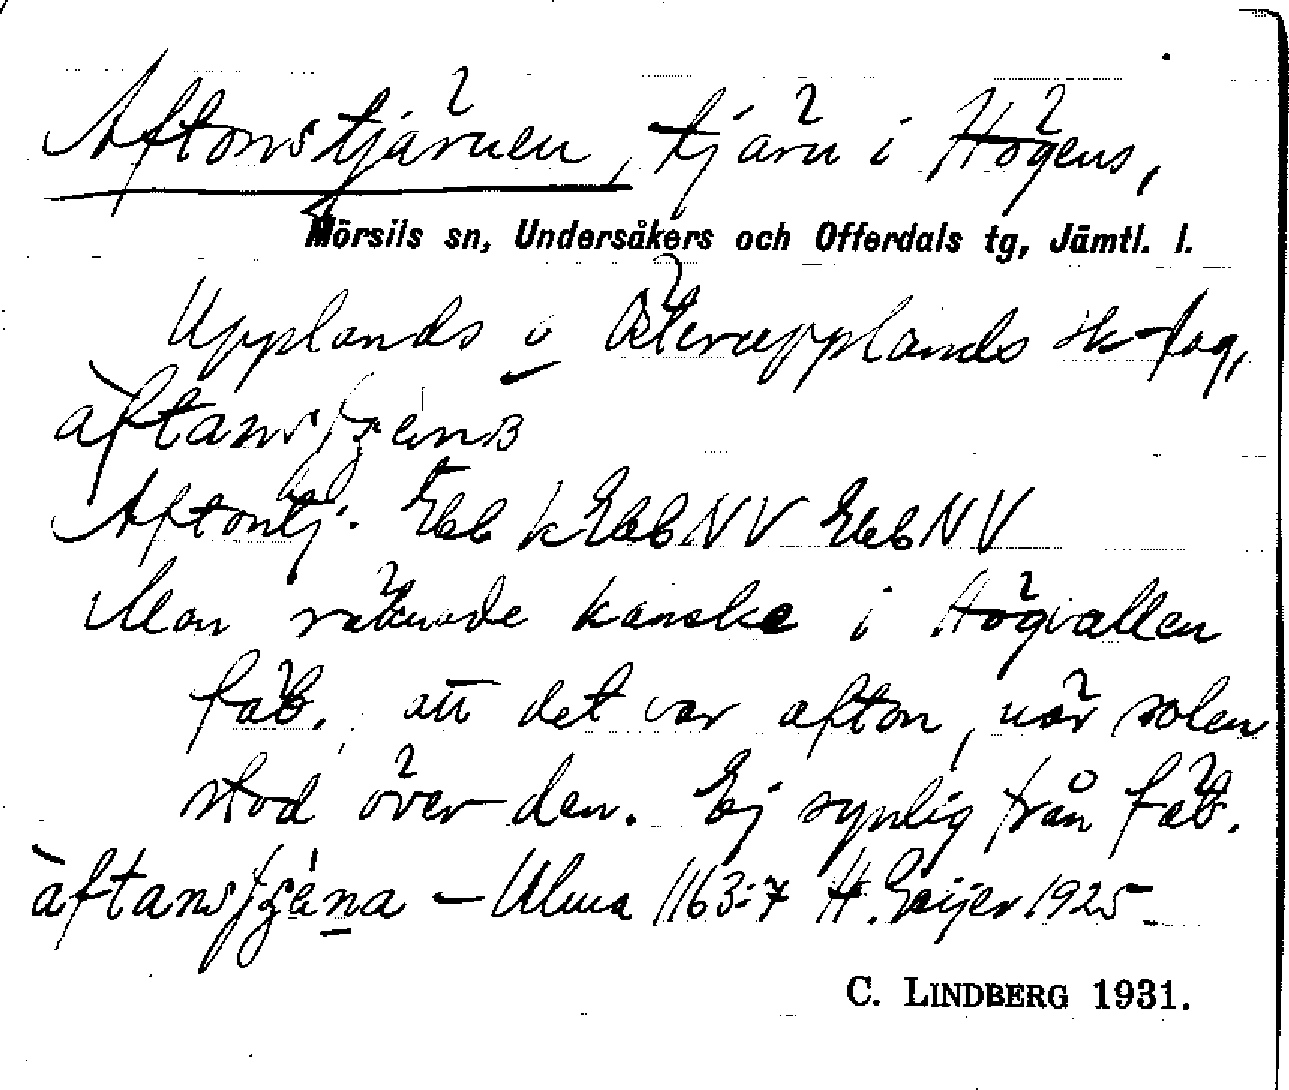 Aftonstjärnen, tjärn i Högens,
Mörsils sn, Undersåkers och Offerdals tg, Jämtl. l.
Upplands o Österupplands sk-lag,
Aftontj. Ebb k EbbNV EbbNV
Man räknade kanske i Högvallen
fäb. att det var afton, när solen
stod över den. Ej synlig från fäb.
àftansʃʒèna – Ulma 1163:7 H. Geijer 1925
C. LINDBERG 1931.